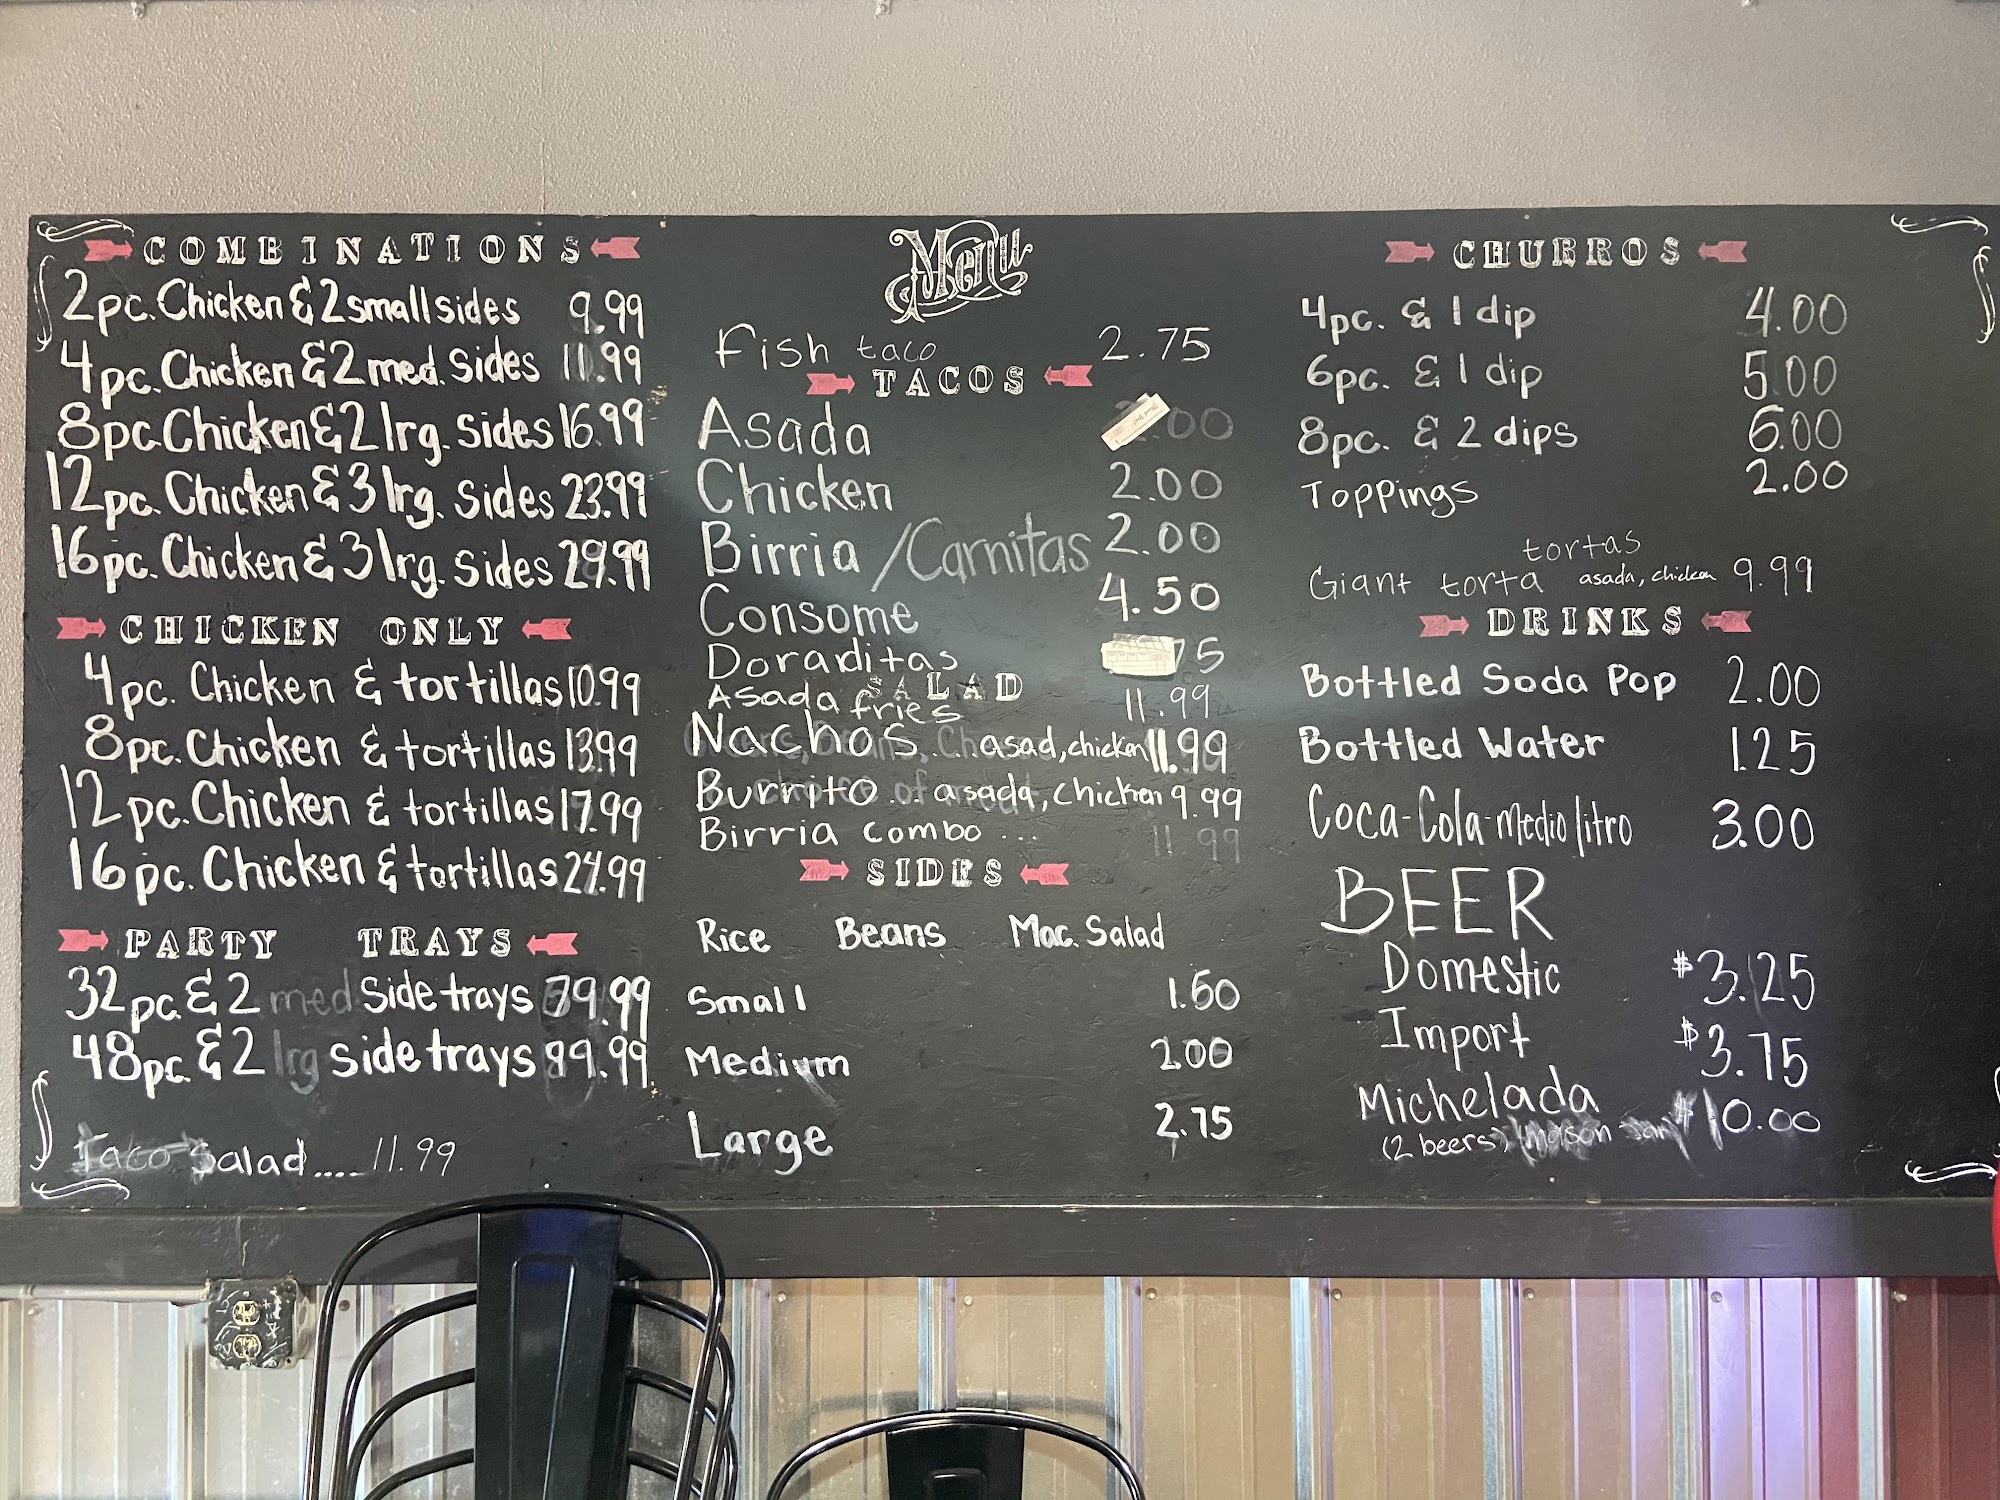 Menu
COMBINATIONS
2pc. Chicken & 2 small sides 9.99
4pc. Chicken & 2 med. Sides 11.99
8pc Chicken & 2 lrg. Sides 16.99
12pc. Chicken & 3 lrg. Sides 23.99
16pc. Chicken & 3 lrg. Sides 29.99
CHICKEN ONLY
4pc. Chicken & tortillas 10.99
8pc. Chicken & tortillas 13.99
12pc. Chicken & tortillas 17.99
16pc. Chicken & tortillas 24.99
PARTY TRAYS
32pc. & 2 med side trays 79.99
48pc. & 2 lrg side trays 89.99
Taco Salad.... 11.99
Fish taco 2.75
TACOS
Asada .00
Chicken 2.00
Birria / Carnitas 2.00
Consome 4.50
Doraditas 75
SALAD
Asada fries 11.99
Nachos... asad, chicken 11.99
Burrito... asada, chicken 9.99
Birria combo... 11.99
SIDES
Rice Beans Mac. Salad
Small 1.50
Medium 2.00
Large 2.75
CHURROS
4pc. & 1 dip 4.00
6pc. & 1 dip 5.00
8pc. & 2 dips 6.00
Toppings 2.00
tortas
Giant torta asada, chicken 9.99
DRINKS
Bottled Soda Pop 2.00
Bottled Water 1.25
Coca-Cola-Medio litro 3.00
BEER
Domestic $3.25
Import $3.75
Michelada $10.00
(2 beers)